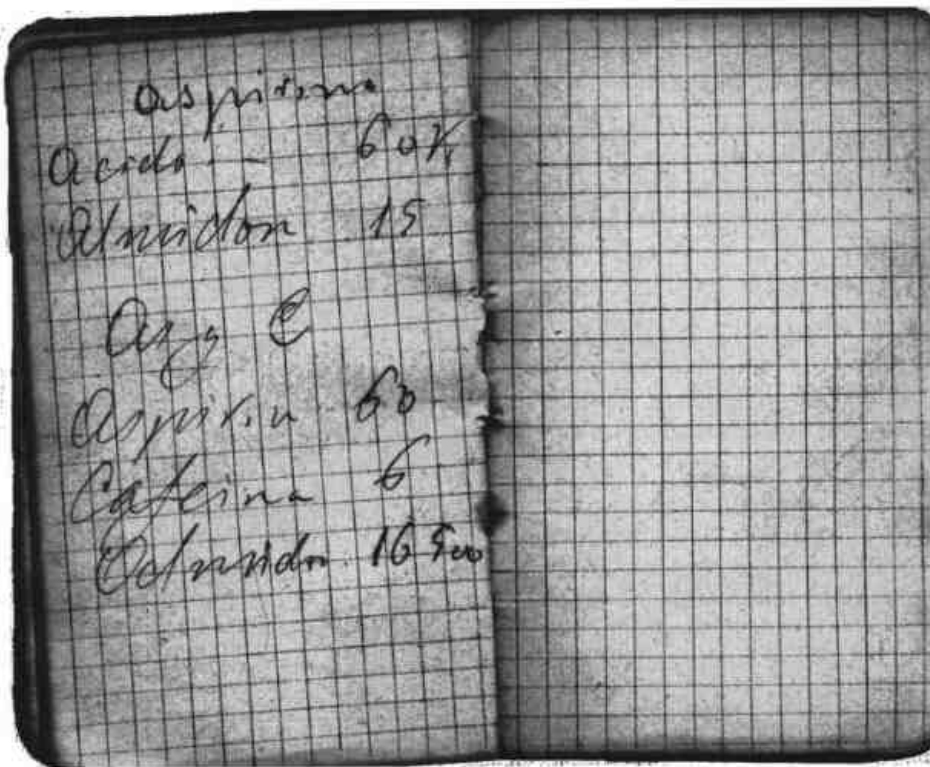 Aspirina
Acido - 60 K
Almidon 15
As y C
Aspirin 60
Cafeina 6
Almidon 16 500